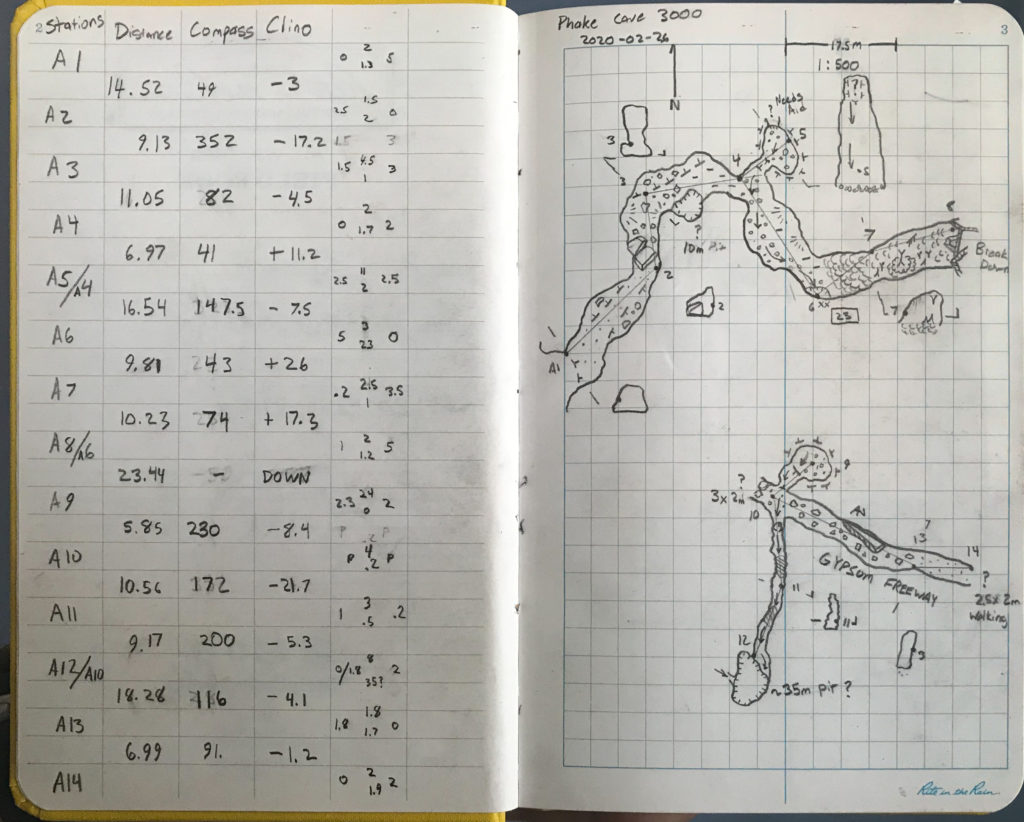 2 Stations Distance Compass Clino
A1 0 2 1.3 5
14.52 49 -3
A2 2.5 1.5 2 0
9.13 352 -17.2 1.5 3
A3 1.5 4.5 1 3
11.05 82 -4.5
A4 0 2 1.7 2
6.97 41 +11.2
A5/A4 2.5 11 2 2.5
16.54 147.5 -7.5
A6 5 3 23 0
9.81 243 +26
A7 .2 2.5 1 3.5
10.23 74 +17.3
A8/A6 1 2 1.2 5
23.44 - DOWN
A9 2.3 24 0 2
5.85 230 -8.4 P .2 P
A10 P 4 .2 P
10.56 172 -21.7
A11 1 3 .5 .2
9.17 200 -5.3
A12/A10 0/1.8 8 35? 2
18.28 116 -4.1
A13 1.8 1.8 1.7 0
6.99 91. -1.2
A14 0 2 1.9 2
Phake Cave 3000
2020-02-26
3
17.5m
1:500
N
? Needs Aid
?
3
4
5
.5
3
?
10m Pit
2
2
7
8
Break Down
6 xx
23
7
A1
9
?
3 x 2m
10
?
13
14
GYPSUM FREEWAY
?
2.5 x 2m
Walking
11
11
12
9
~35m pit ?
Rite in the Rain